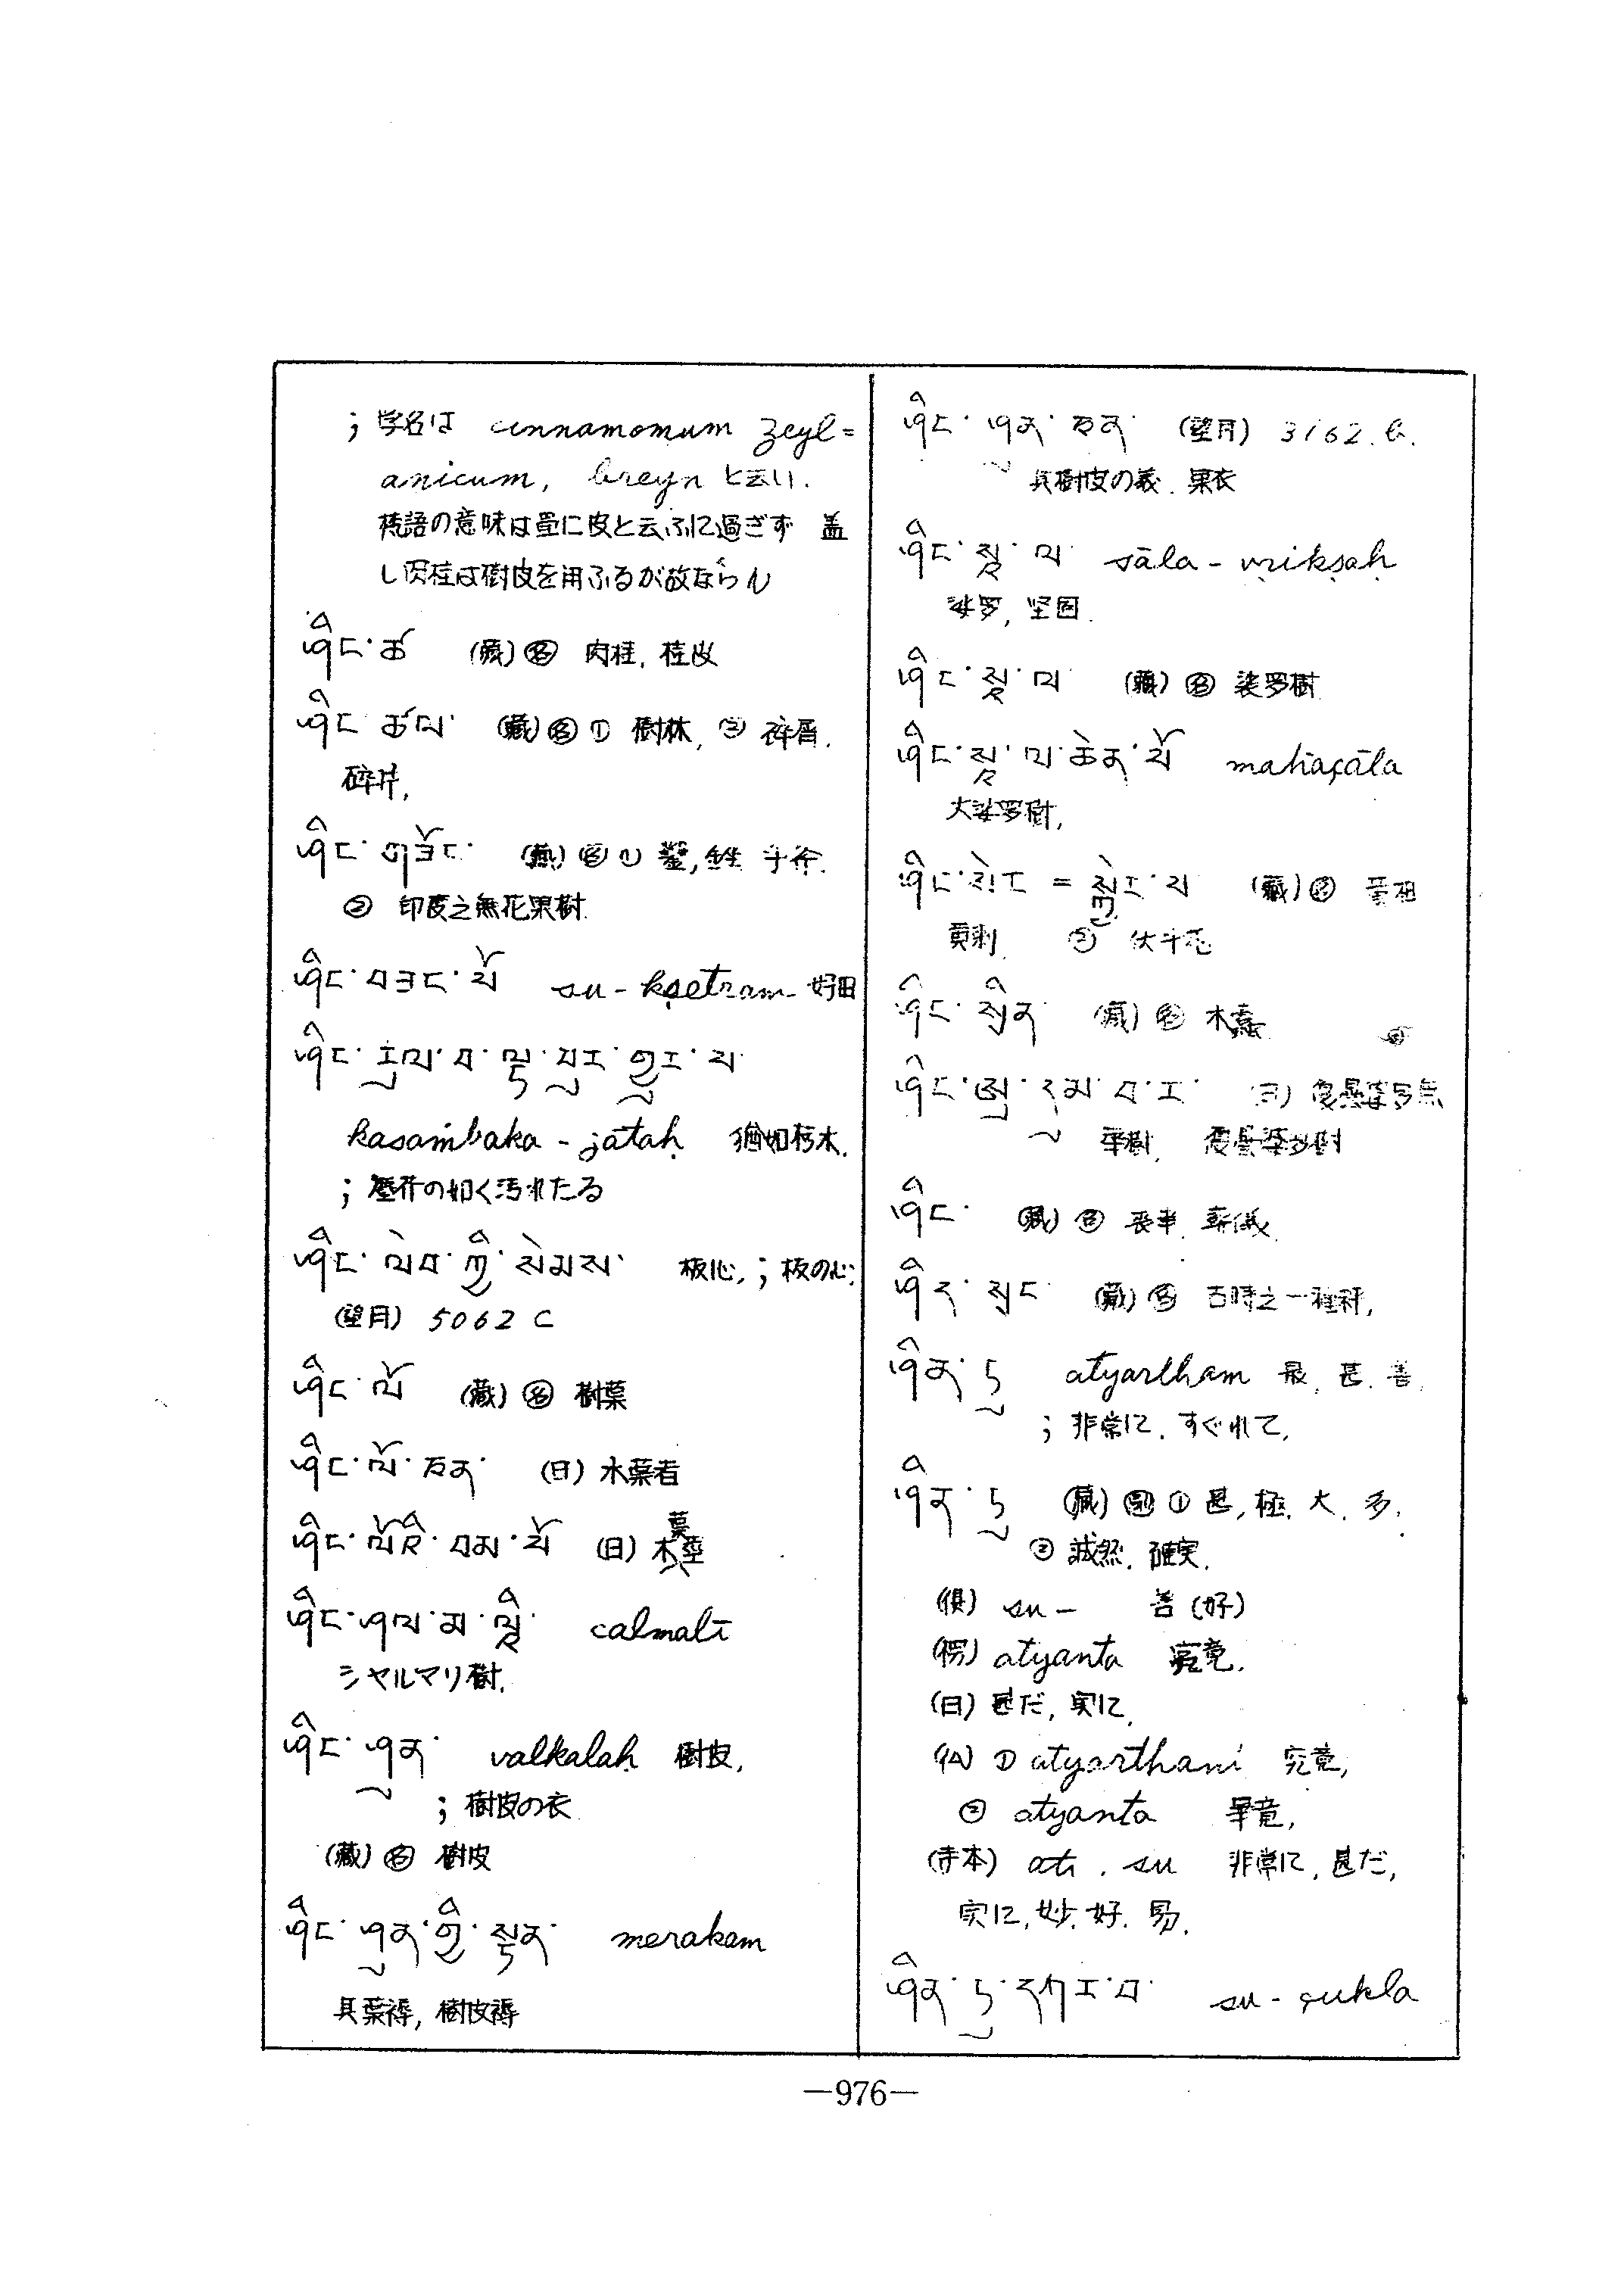 ; 学名は cinnamomum zeyl=
anicum, breyn と云い.
梵語の意味は単に皮と云ふに過ぎず 蓋
し肉桂は樹皮を用ふるが故ならん
ཤིང་ཚ (藏)㊔ 肉桂, 桂皮
ཤིང་ཚལ་ (藏)㊔① 樹林, ② 碎屑.
碎片,
ཤིང་གཟོང་ (藏)㊔① 鑿,
② 印度之無花果樹.
ཤིང་བཟང་པོ su-kṣetram 好田
ཤིང་རུལ་བ་ལྟ་བུར་གྱུར་པ
kasaṁbaka-jātaḥ 猶如朽木.
; 塵芥の如く汚れたる
ཤིང་ལེབ་ཀྱི་སེམས་ 板心, ; 板の心;
(望月) 5062 C
ཤིང་ལོ (藏)㊔ 樹葉
ཤིང་ལོ་ཅན་ (日) 木葉者
ཤིང་ལོའི་བམ་པོ (日) 木葉
ཤིང་ཤལ་མ་ལི་ calmalī
シャルマリ樹,
ཤིང་ཤུན་ valkalaḥ 樹皮,
; 樹皮の衣
(藏)㊔ 樹皮
ཤིང་ཤུན་གྱི་སྟན་ merakam
具葉褥, 樹皮褥
ཤིང་ཤུན་ཅན་ (望月) 3162.b.
具樹皮の義. 果衣
ཤིང་སཱ་ལ་ sāla-vṛikṣaḥ
娑罗, 坚固.
ཤིང་སཱ་ལ་ (藏)㊔ 娑罗樹
ཤིང་སཱ་ལ་ཆེན་པོ mahāçāla
大娑罗樹,
ཤིང་སྲིན་ (藏)㊔ 木蠹
ཤིང་ཨུ་དུམ་བ་ར་
ཤིང་ (藏)㊔ 丧事, 葬儀
ཤིད་ (藏)㊔ 古時之一種秤,
ཤིན་ཏུ atyartham 最, 甚, 善,
; 非常に, すぐれて,
ཤིན་ཏུ (藏)㊓① 甚, 極, 大, 多,
② 誠然, 確実.
(倶) su- 善 (好)
(楞) atyanta 究竟.
(日) 甚だ, 実に,
① atyarthani 究竟,
② atyanta 畢竟,
(寺本) ati, su 非常に, 甚だ,
実に, 妙, 好, 易.
ཤིན་ཏུ་དཀར་བ་ su-çukla
—976—